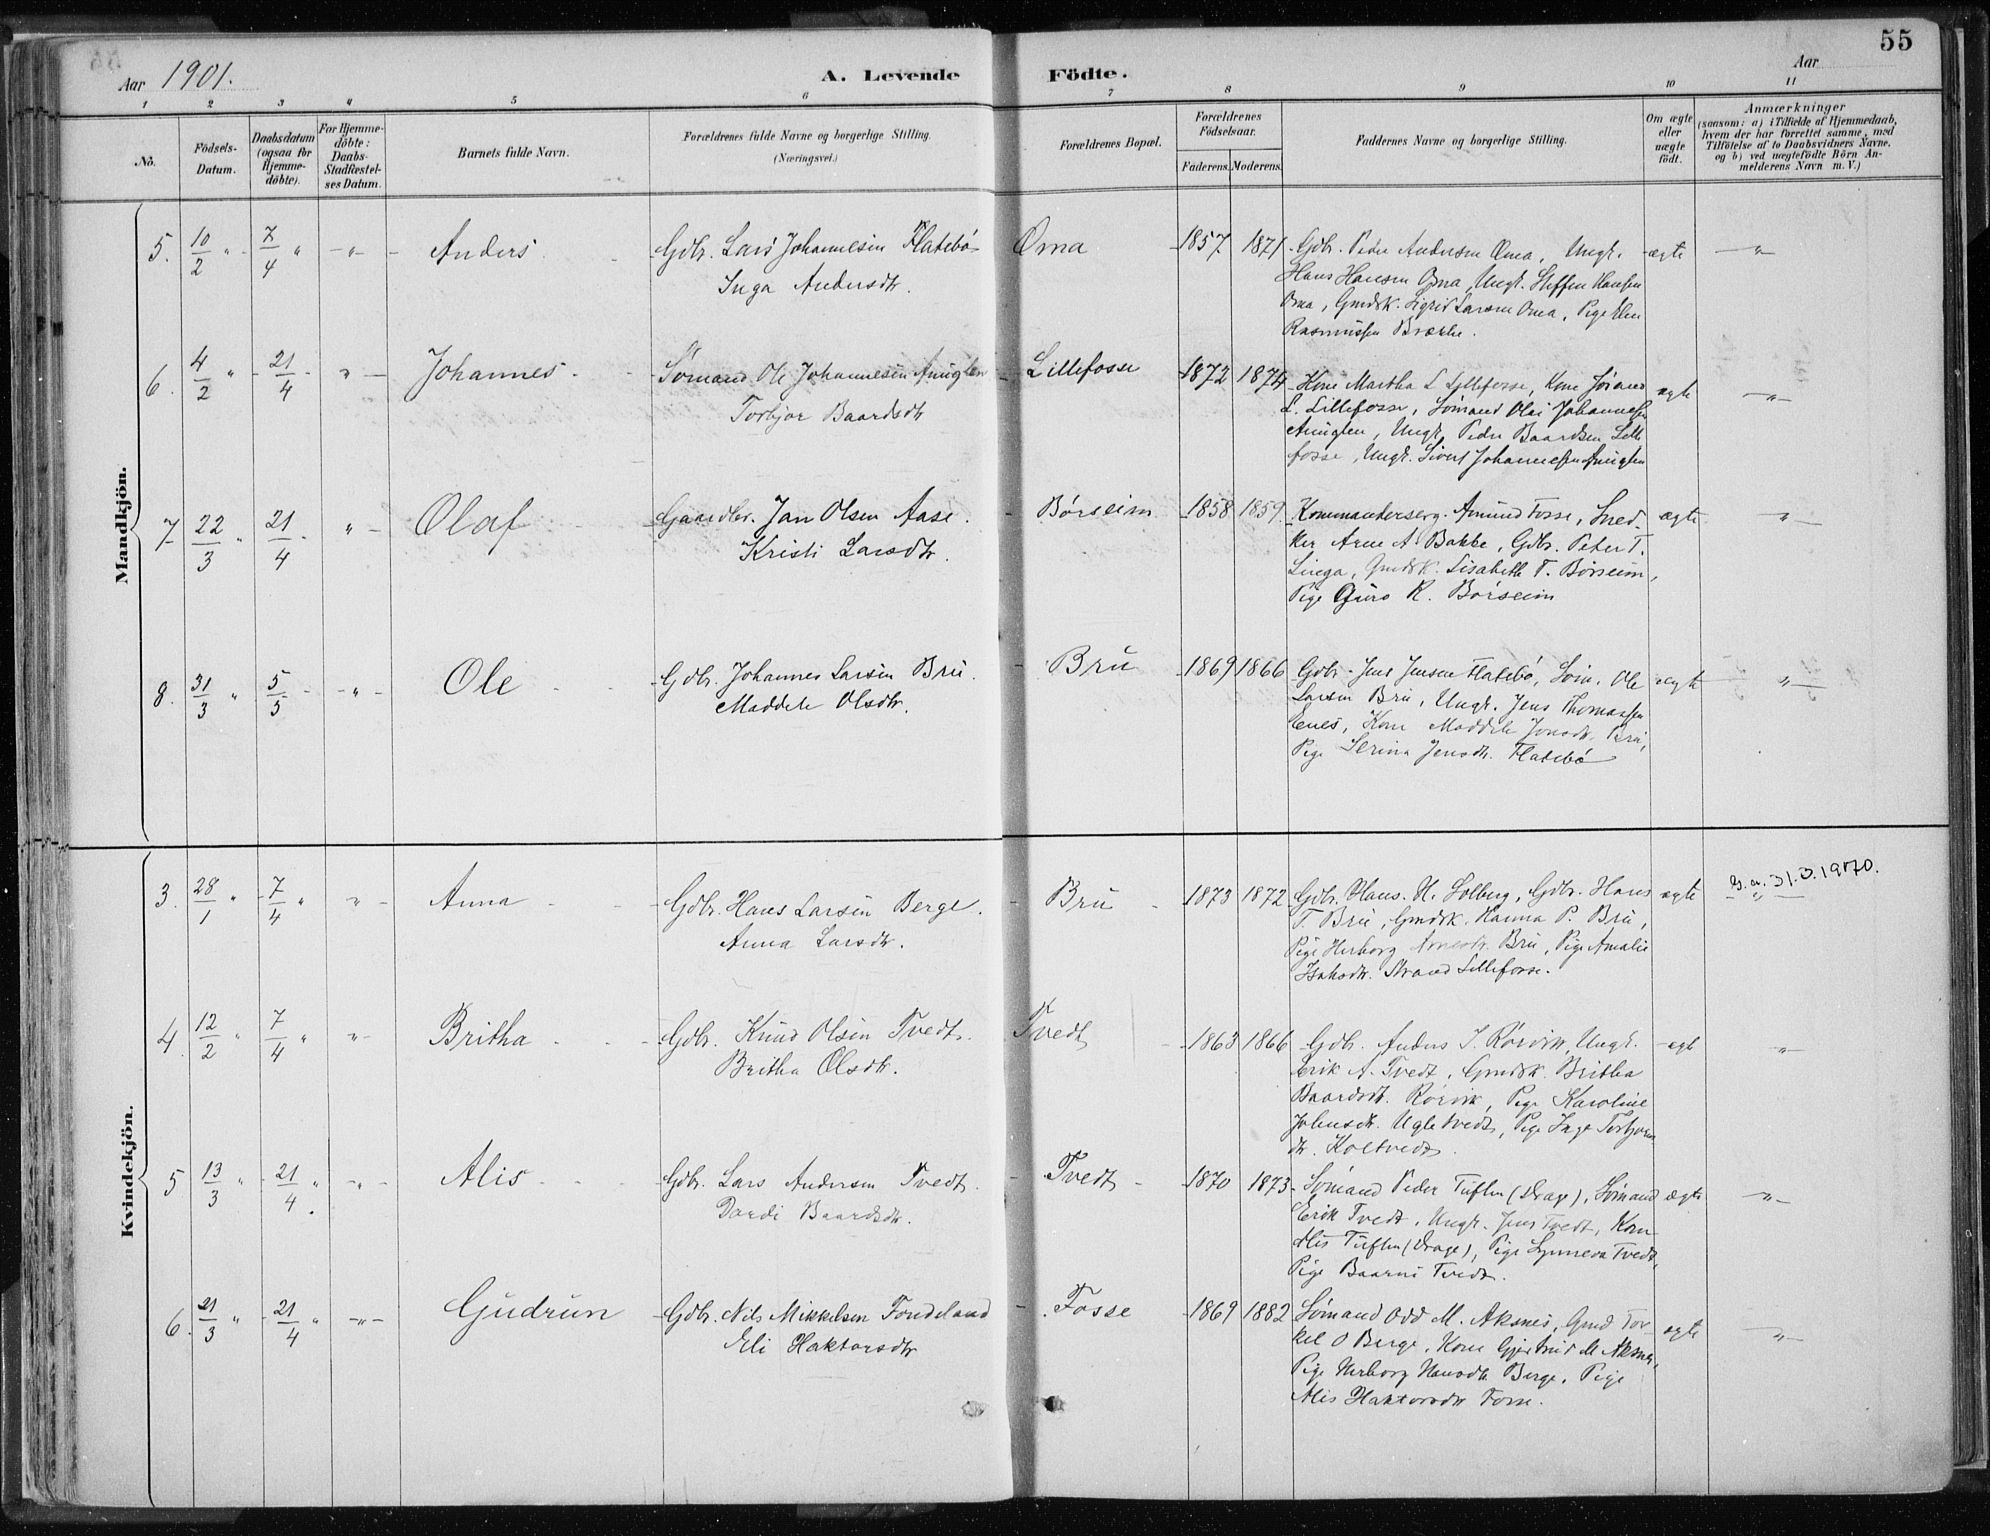 55
Aar 1901. A. Levende Födte. Aar
1 2 3 4 5 6 7 8 9 10 11
No.
Födsels-
Datum.
Daabsdatum
(ogsaa for
Hjemme-
döbte).
For Hjemme-
döbte:
Daabs-
Stadfæstel-
ses Datum.
Barnets fulde Navn.
Forældrenes fulde Navne og borgerlige Stilling.
(Næringsvei.)
Forældrenes Bopæl.
Forældrenes
Födselsaar.
Faderens. Moderens.
Faddernes Navne og borgerlige Stilling.
Om ægte
eller
uægte
födt.
Anmærkninger
(saasom: a) i Tilfælde af Hjemmedaab,
hvem der har forrettet samme, med
Tilföielse af to Daabsvidners Navne,
og b) ved uægtefödte Börn An-
melderens Navn m. V.)
Mandkjön.
5. 10/2 " 7/4 " " Anders Gdbr. Lars Johannesen Flatebö
Inga Andersdtr.
Oma 1857 1871
Gdbr. Peder Andersen Oma, Ungk.
Hans Hansen Oma, Ungk. Steffen Hansen
Oma, Gmdsk. Sigrid Larsen Oma, Pige Elen
Rasmussen Brække.
ægte "
6. 4/2 " 21/4 " Johannes Sømand Ole Johannesen Anuglen
Torbjør Baardsdtr
Lillefosse 1872 1874
Kone Martha L Lillefosse, Kone Jøraand
L. Lillefosse, Sömand Olai Johannesen
Anuglen, Ungk. Peder Baardsen Lille
fosse, Ungk. Sivert Johannesen Anuglen
ægte "
7 22/3 " 21/4 " Olaf Gaardbr. Jan Olsen Aase.
Kristi Larsdtr.
Børseim 1858 1859
Kommanderserg. Amund Fosse, Sned-
ker Arne A. Bakke, Gdbr. Peter T.
Linga, Gmdsk. Lisabeth T. Börseim,
Pige Guro R. Börseim
ægte "
8. 31/3 " 5/5 " Ole Gdbr. Johannes Larsen Bru.
Maddele Olsdtr.
Bru 1869 1866
Gdbr. Jens Jensen Flatebö, Söm. Ole
Larsen Bru, Ungk. Jens Thomassen
Enes, Kone Maddele Jonsdtr. Bru,
Pige Serina Jensdtr. Flatebö
ægte "
Kvindekjön.
3. 28/1 " 7/4 " " Anna Gdbr. Hans Larsen Berge.
Anna Larsdtr.
Bru 1873 1872
Gdbr. Hans H. Solberg, Gdbr. Hans
T. Bru, Gmdsk. Hanna P. Bru,
Pige Herborg Arnesdtr. Bru, Pige Amalie
Isaksdtr. Strand Lillefosse.
ægte G.a. 31.3.1970.
"
4. 12/2 " 7/4 " " Britha Gdbr. Knud Olsen Tvedt.
Britha Olsdtr.
Tvedt 1863 1866
Gdbr. Anders I. Rörvik, Ungk.
Erik A. Tvedt, Gmdsk. Britha
Baardsdt. Rörvik, Pige Karoline
Johnsdtr. Ugletvedt, Pige Inge Torbjorns
dtr. Koltvedt.
ægte "
5 13/3 " 21/4 " " Alis Gdbr. Lars Andersen Tvedt.
Dordi Baardsdtr.
Tvedt 1870 1873
Sömand Peder Tuften (Drage), Sömand
Erik Tvedt, Ungk. Jens Tvedt, Kone
Alis Tuften (Drage), Pige Synneva Tvedt,
Pige Baarni Tvedt.
ægte "
6. 21/3 " 21/4 " " Gudrun Gdbr. Nils Mikkelsen Fondeland
Eli Haktorsdtr
Fosse 1869 1882
Sömand Odd M. Aksnes, Gmd Tor-
kel O Berge, Kone Gjertrud M Aksnes,
Pige Herborg Hansdtr Berge, Pige
Alis Haktorsdtr Fosse.
ægte "